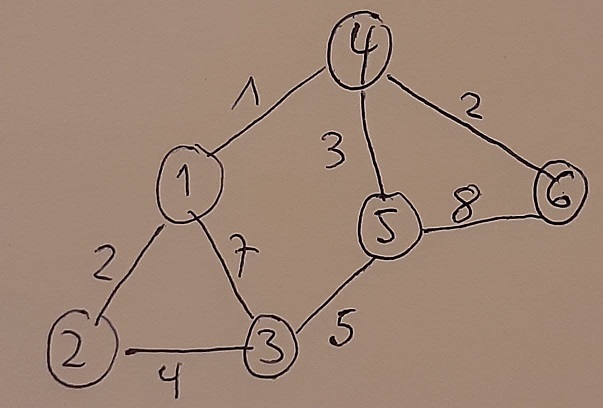 4
1
2
3
1
5
8
6
2
7
2
3
5
4